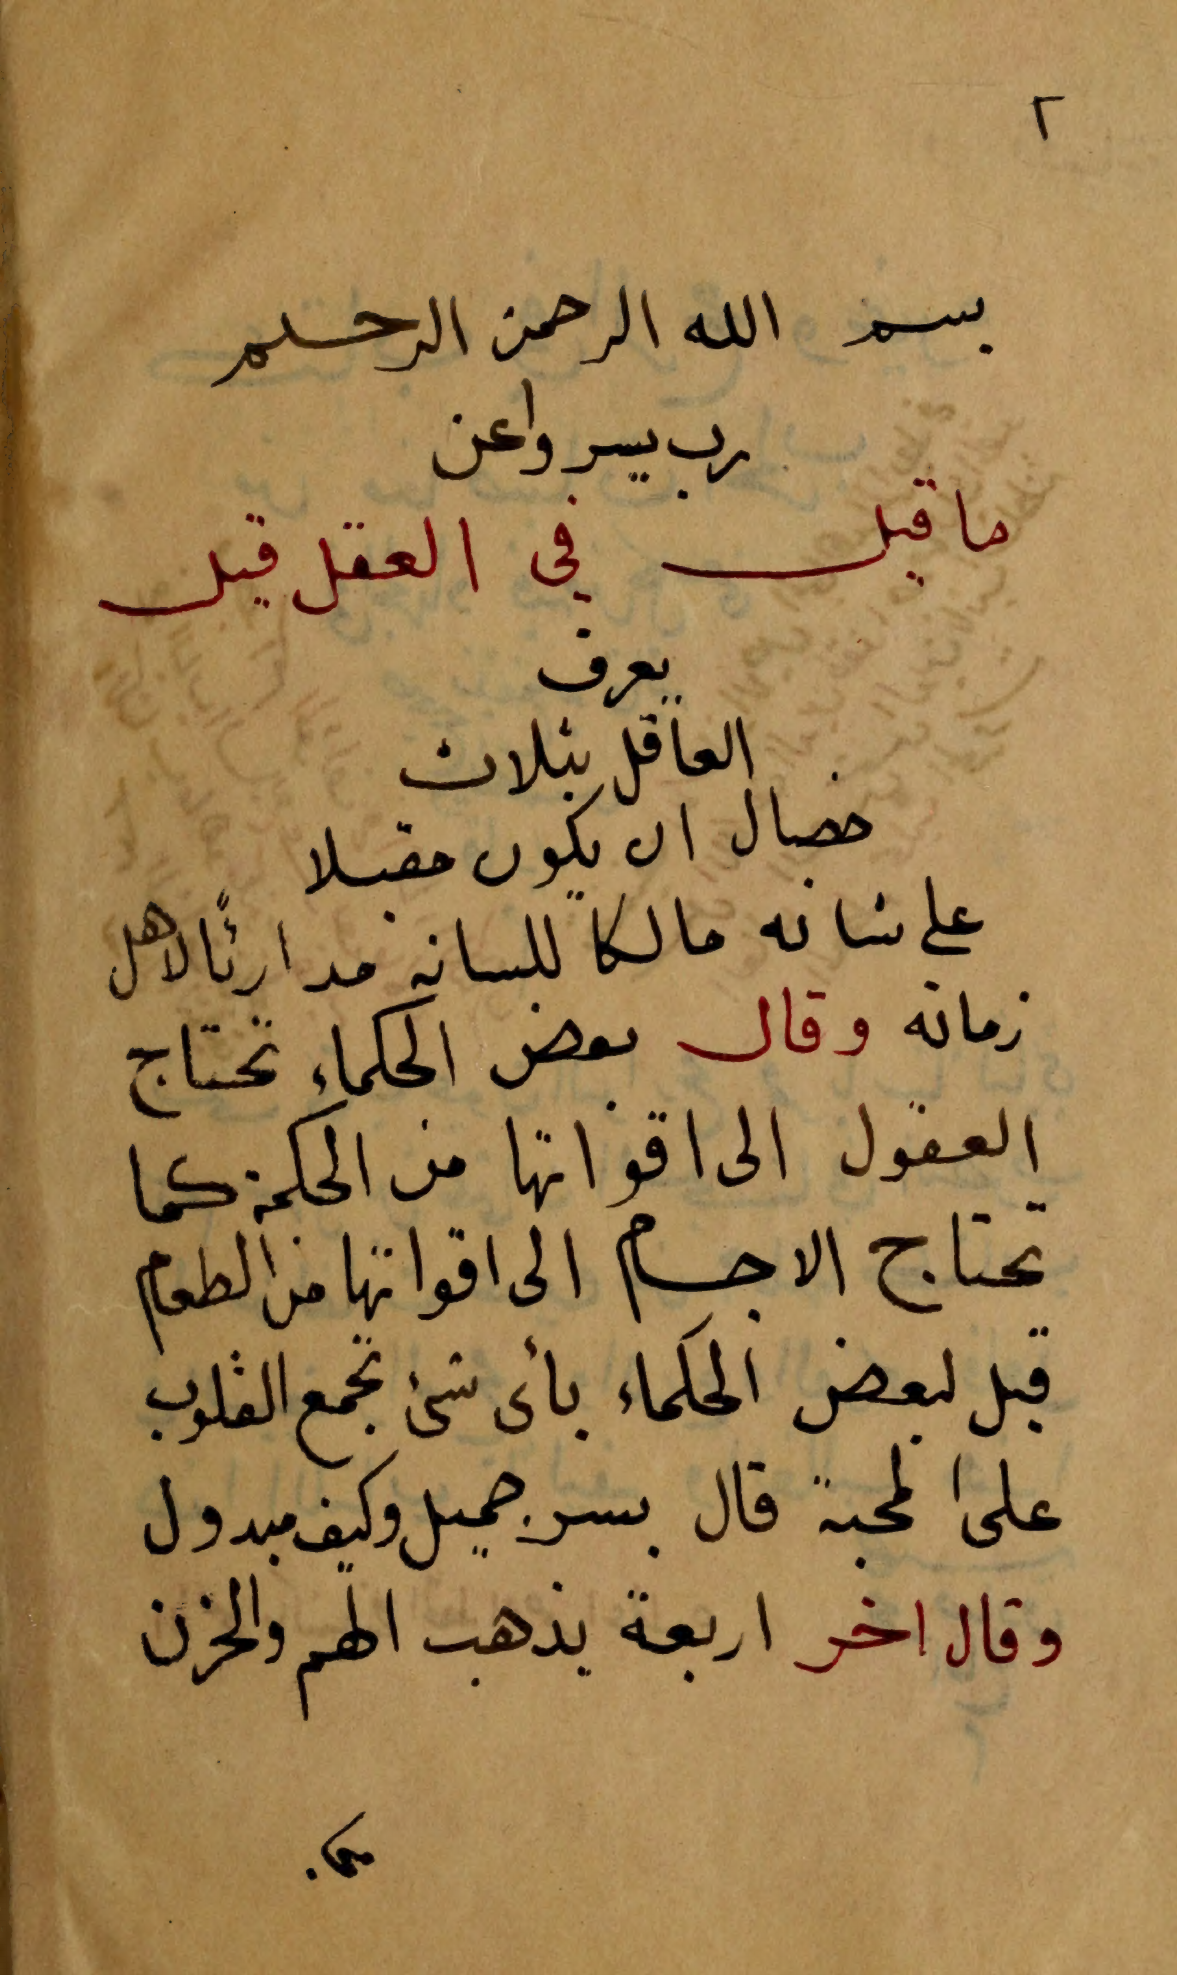 ٢
بسم الله الرحمن الرحيم
رب يسر واعن
ما قيل في العقل قيل
يعرف
العاقل بثلاث
خصال ان يكون مقبلا
على شانه مالكا للسانه مدارئًا لاهل
زمانه وقال بعض الحكماء تحتاج
العقول الى اقواتها من الحكمة كما
تحتاج الاجسام الى اقواتها من الطعام
قيل لبعض الحكماء بأى شئ تجمع القلوب
على المحبة قال بسر جميل وكيف مبدول
وقال اخر اربعة يذهب الهم والحزن